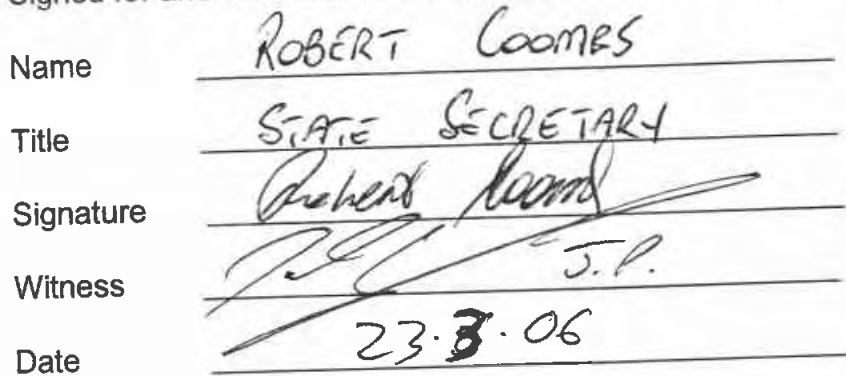 Signed for and
Name ROBERT COOMBS
Title STATE SECRETARY
Signature Robert Coombs
Witness J.P.
Date 23.3.06